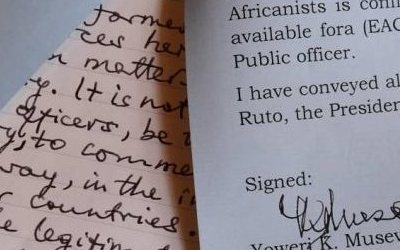 former
ces her
n matter
y. It is not
officers, be
y, to comme
way, in the i
r countries.
e legitim
Africanists is
available fora (EAC
Public officer.
I have conveyed al
Ruto, the Presiden
Signed:
Yoweri K. Musev